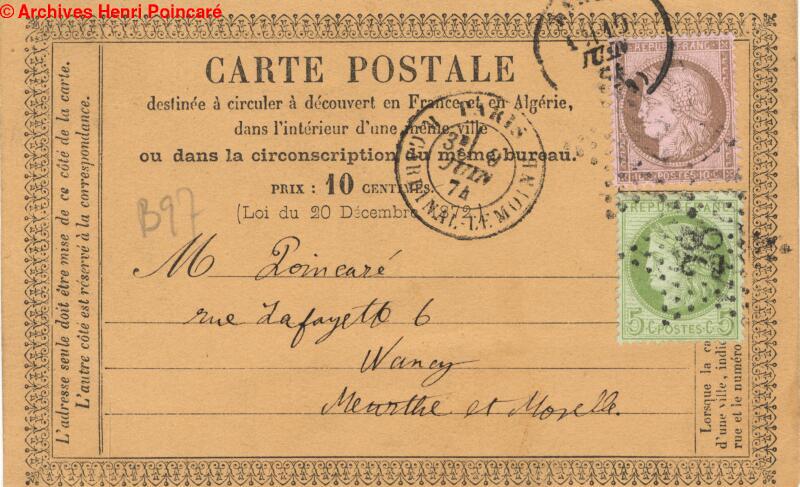 © Archives Henri Poincaré
CARTE POSTALE
destinée à circuler à découvert en France et en Algérie,
dans l'intérieur d'une même ville
ou dans la circonscription du même bureau.
PRIX : 10 CENTIMES.
(Loi du 20 Décembre 1872.)
B97
M Poincaré
rue Lafayette 6
Nancy
Meurthe et Moselle.
L'adresse seule doit être mise de ce côté de la carte.
L'autre côté est réservé à la correspondance.
PARIS
JUIN
74
R. CARDINAL-LEMOINE
JUIN
REPUB FRANC
POSTES 10 C
REPUB FRANC
5 C POSTES C 5
Lorsque la ca
d'une ville, indi
rue et le numéro